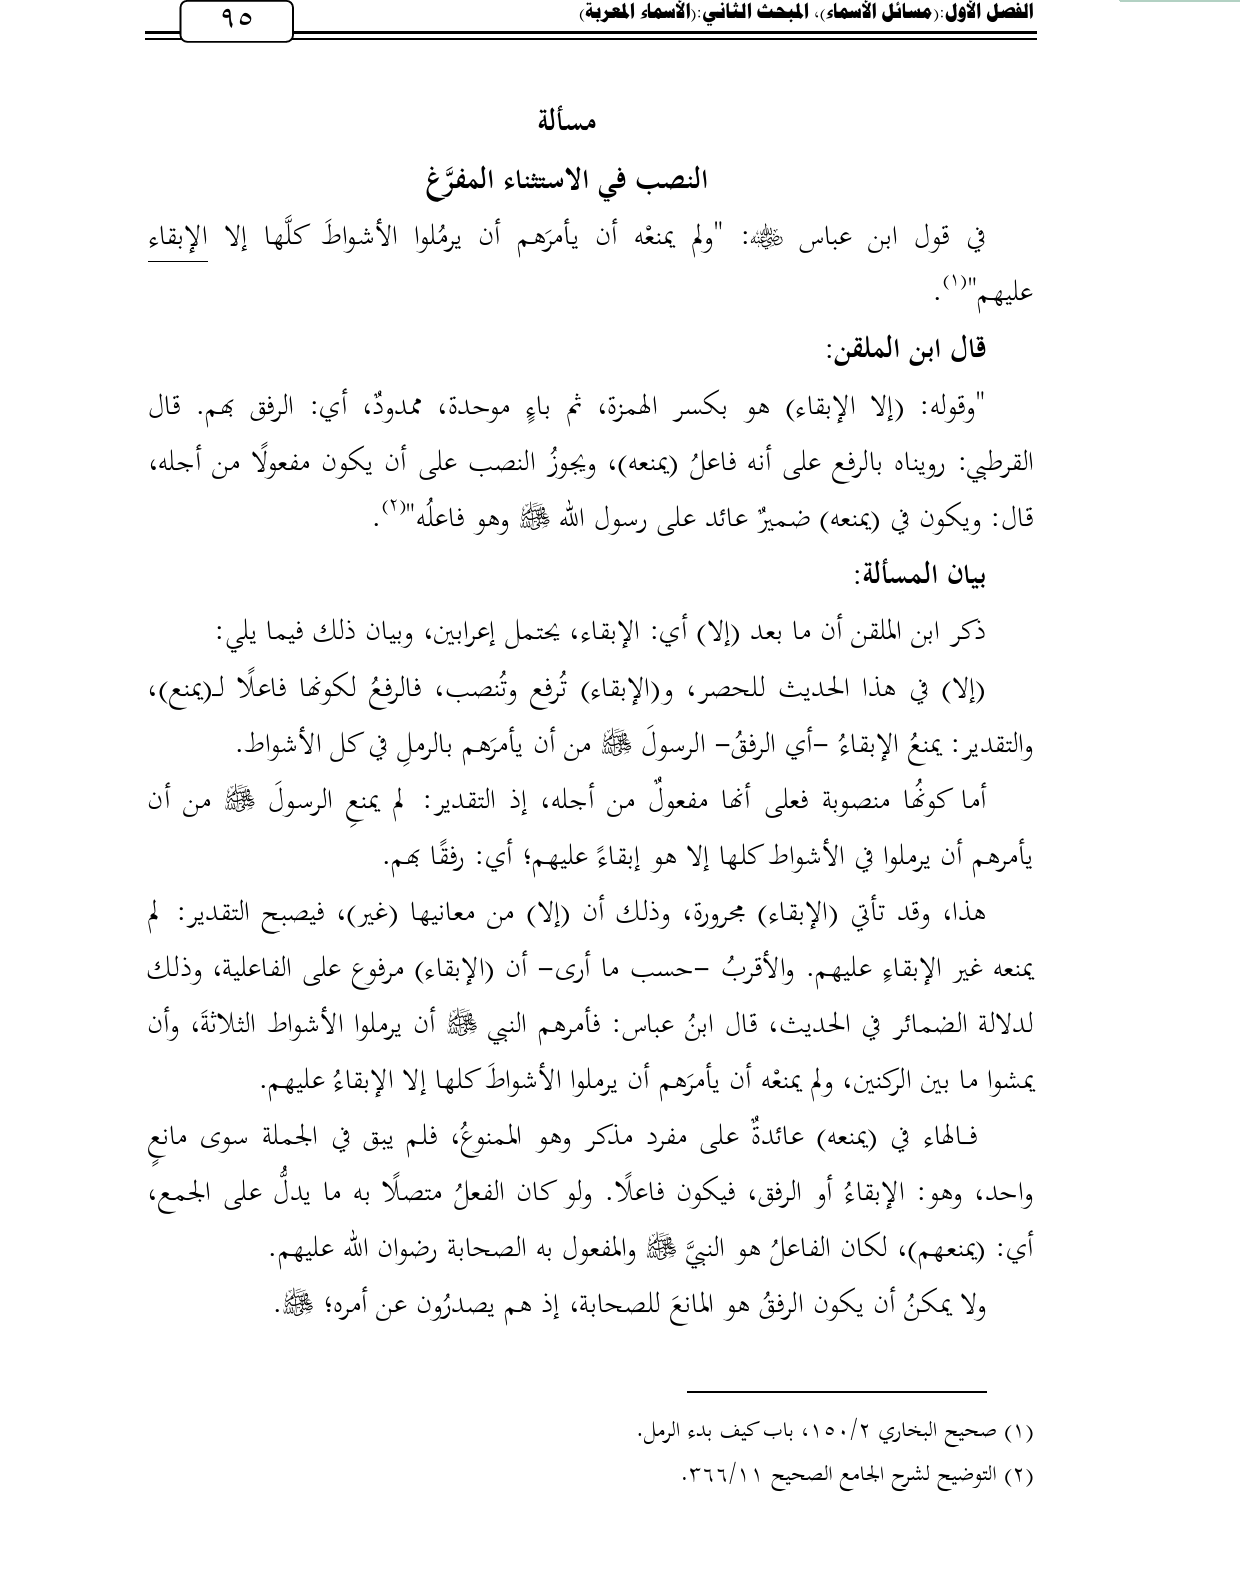 الفصل الأول:(مسائل الأسماء)، المبحث الثاني:(الأسماء المعربة)
٩٥
مسألة
النصب في الاستثناء المفرَّغ
في قول ابن عباس ﵁: "ولم يمنعْه أن يأمرَهم أن يرمُلوا الأشواطَ كلَّها إلا الإبقاء
عليهم"(١).
قال ابن الملقن:
"وقوله: (إلا الإبقاء) هو بكسر الهمزة، ثم باءٍ موحدة، ممدودٌ، أي: الرفق بهم. قال
القرطبي: رويناه بالرفع على أنه فاعلُ (يمنعه)، ويجوزُ النصب على أن يكون مفعولًا من أجله،
قال: ويكون في (يمنعه) ضميرٌ عائد على رسول الله ﷺ وهو فاعلُه"(٢).
بيان المسألة:
ذكر ابن الملقن أن ما بعد (إلا) أي: الإبقاء، يحتمل إعرابين، وبيان ذلك فيما يلي:
(إلا) في هذا الحديث للحصر، و(الإبقاء) تُرفع وتُنصب، فالرفعُ لكونها فاعلًا لـ(يمنع)،
والتقدير: يمنعُ الإبقاءُ –أي الرفقُ– الرسولَ ﷺ من أن يأمرَهم بالرملِ في كل الأشواط.
أما كونُها منصوبة فعلى أنها مفعولٌ من أجله، إذ التقدير: لم يمنعِ الرسولَ ﷺ من أن
يأمرهم أن يرملوا في الأشواط كلها إلا هو إبقاءً عليهم؛ أي: رفقًا بهم.
هذا، وقد تأتي (الإبقاء) مجرورة، وذلك أن (إلا) من معانيها (غير)، فيصبح التقدير: لم
يمنعه غير الإبقاءِ عليهم. والأقربُ –حسب ما أرى– أن (الإبقاء) مرفوع على الفاعلية، وذلك
لدلالة الضمائر في الحديث، قال ابنُ عباس: فأمرهم النبي ﷺ أن يرملوا الأشواط الثلاثةَ، وأن
يمشوا ما بين الركنين، ولم يمنعْه أن يأمرَهم أن يرملوا الأشواطَ كلها إلا الإبقاءُ عليهم.
فـالهاء في (يمنعه) عائدةٌ على مفرد مذكر وهو الممنوعُ، فلم يبق في الجملة سوى مانعٍ
واحد، وهو: الإبقاءُ أو الرفق، فيكون فاعلًا. ولو كان الفعلُ متصلًا به ما يدلُّ على الجمع،
أي: (يمنعهم)، لكان الفاعلُ هو النبيَّ ﷺ والمفعول به الصحابة رضوان الله عليهم.
ولا يمكنُ أن يكون الرفقُ هو المانعَ للصحابة، إذ هم يصدرُون عن أمره؛ ﷺ.
(١) صحيح البخاري ١٥٠/٢، باب كيف بدء الرمل.
(٢) التوضيح لشرح الجامع الصحيح ٣٦٦/١١.